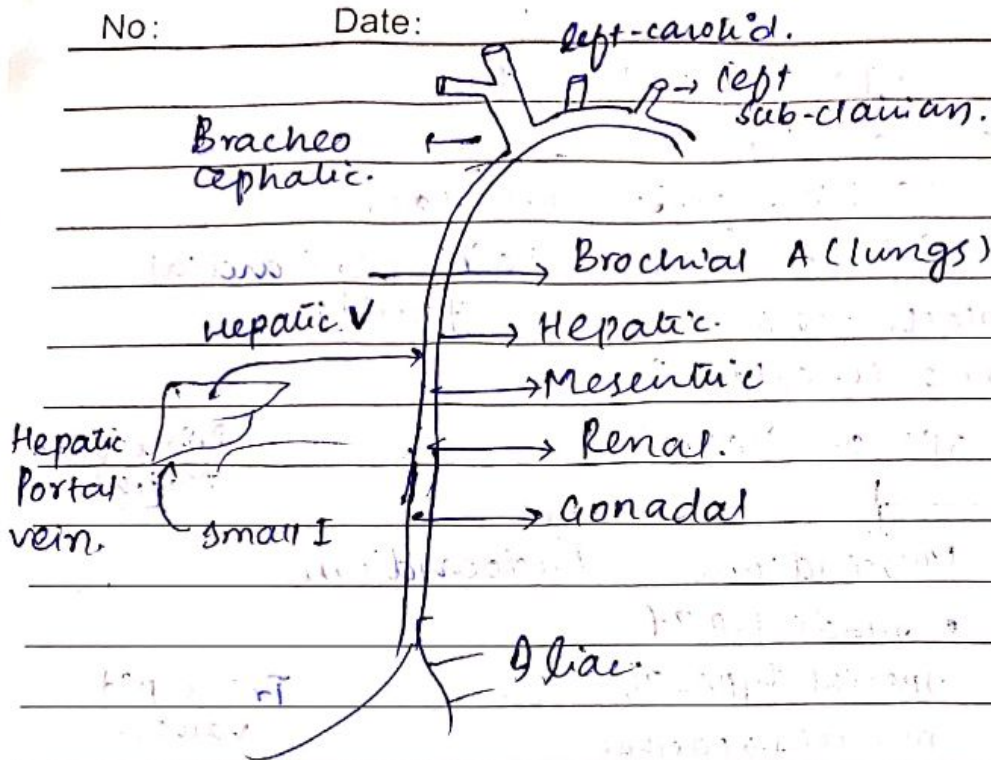 No: Date:
left-carotid.
→ left
sub-clavian.
Bracheo
cephalic.
Brochial A (lungs)
Hepatic V
Hepatic.
Mesentric
Renal.
Gonadal
Hepatic
Portal
vein.
Small I
Iliac.